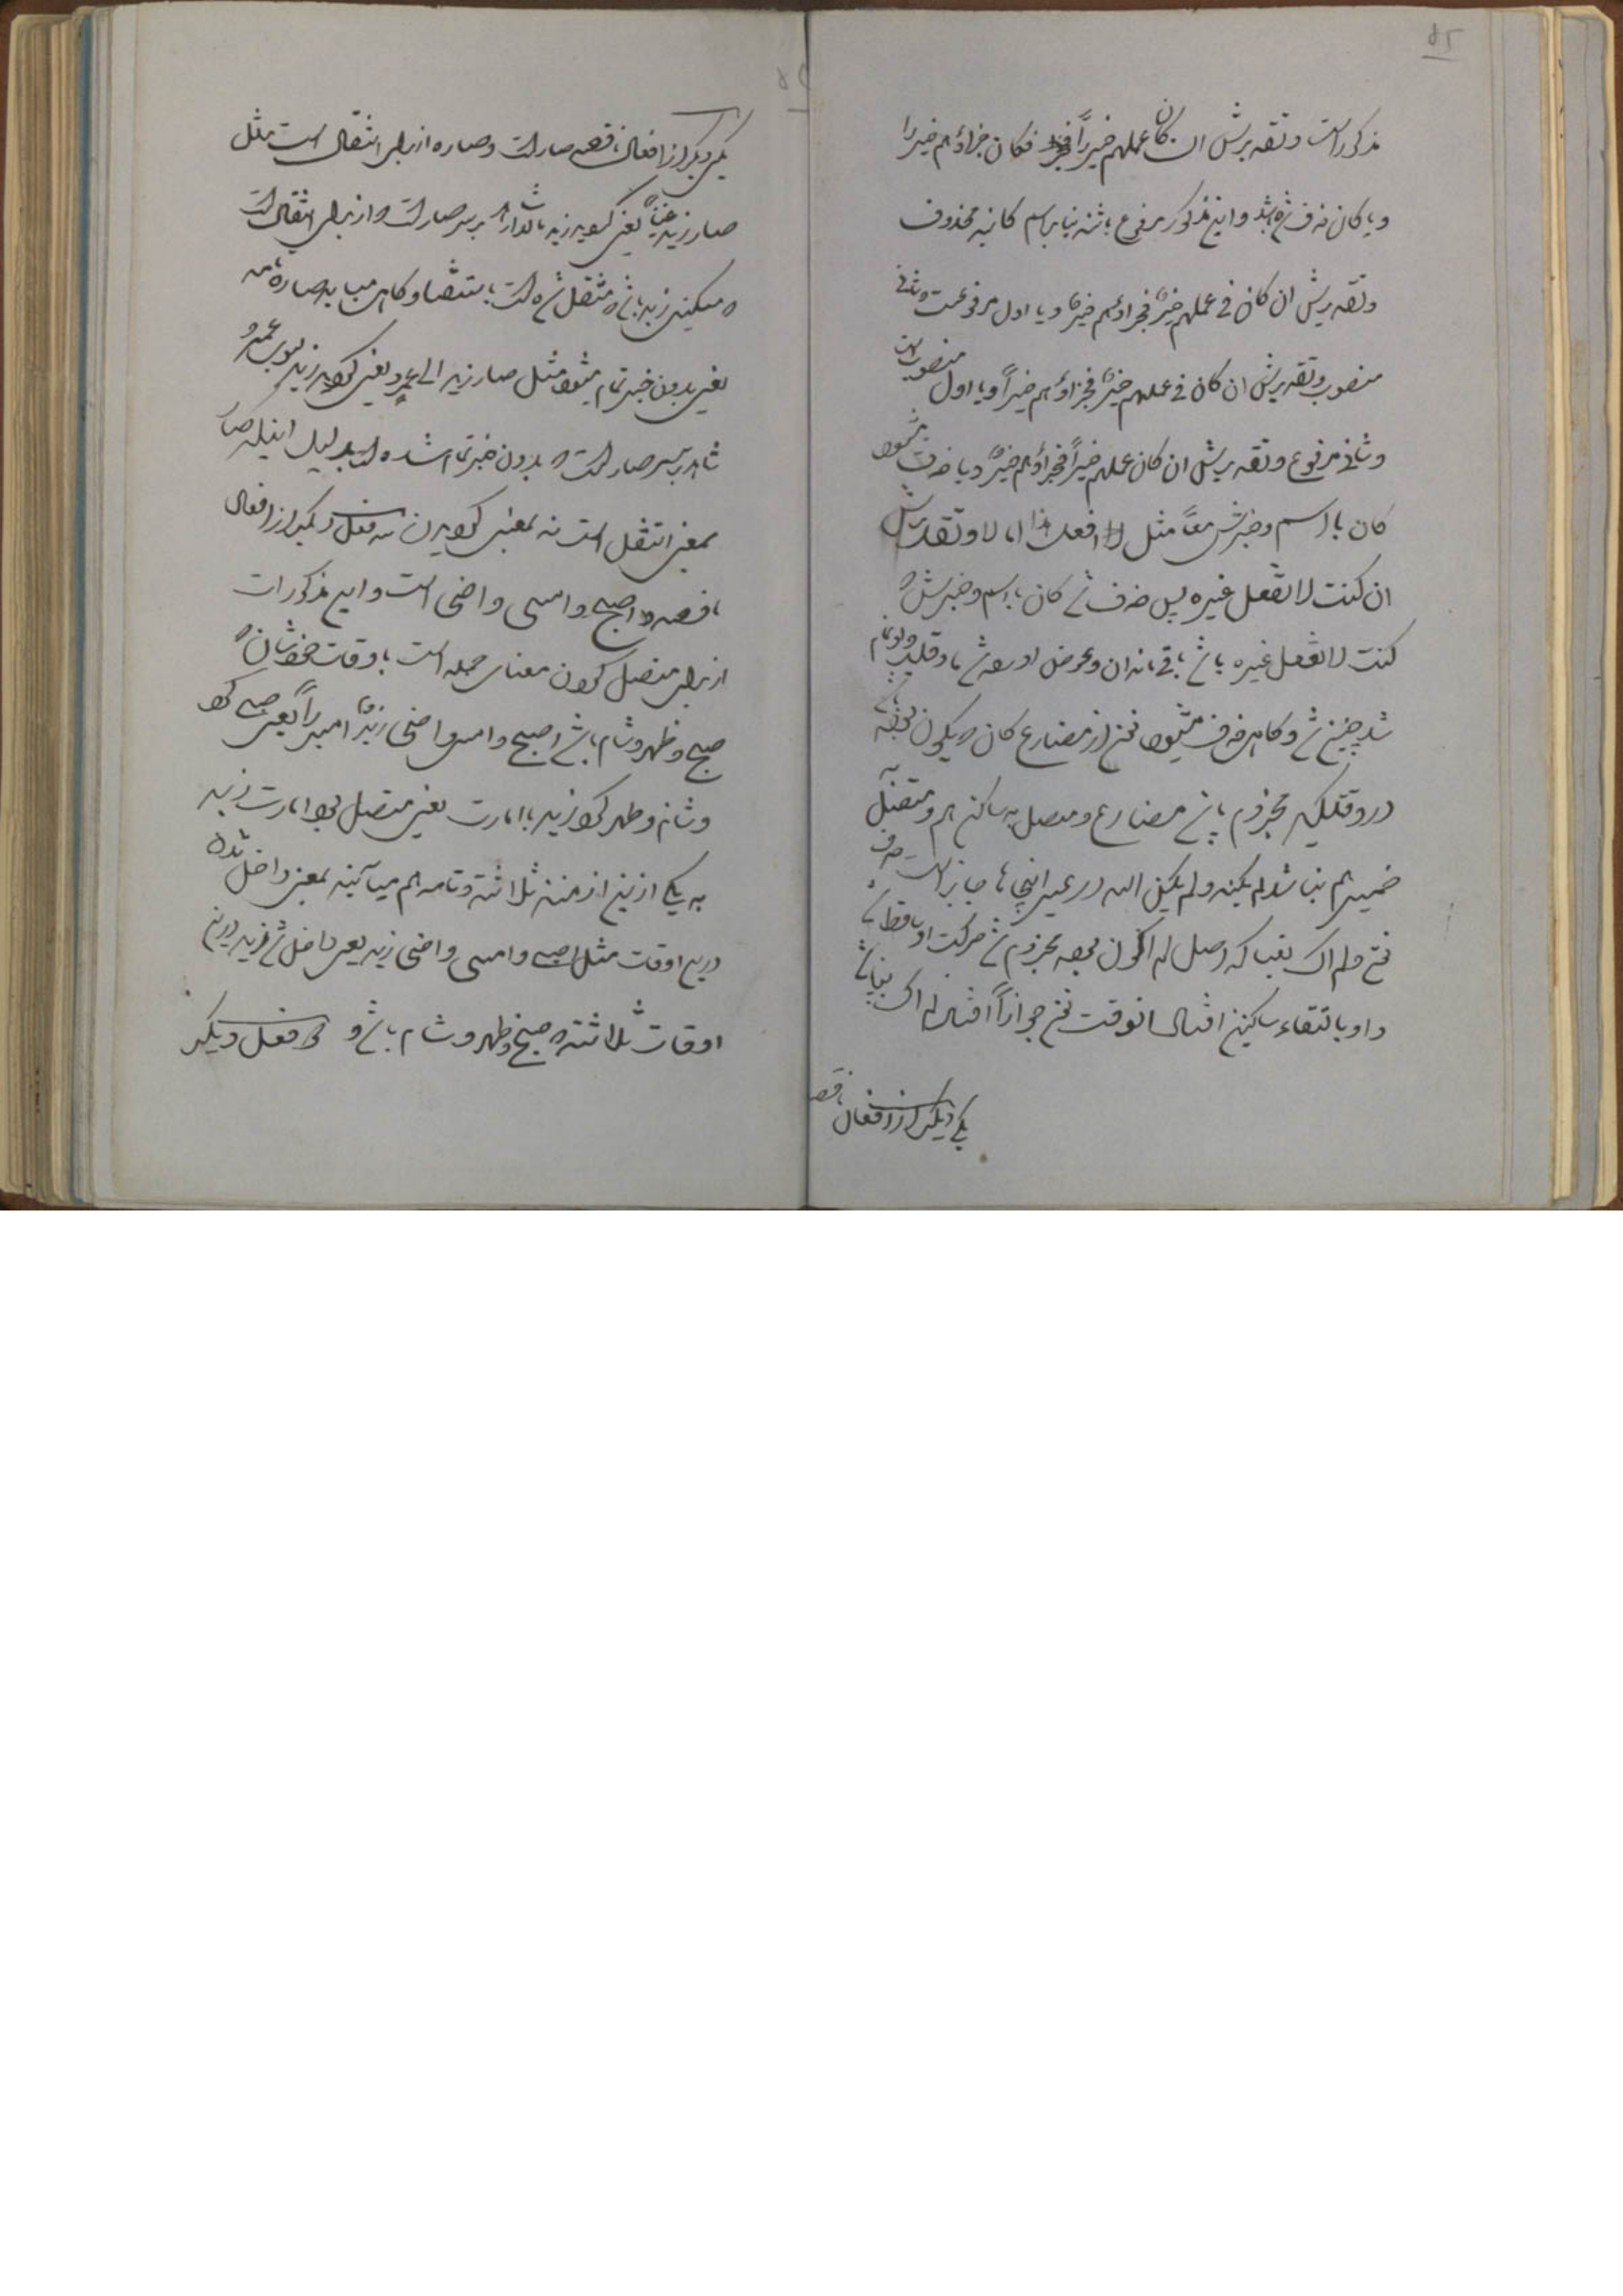 ۸۲
مذکور است و تقدیرش ان کان عملهم خیراً فکان جزاؤهم خیرا
و یا کان حذف شده باشد و این مذکور مرفوع باشد بنا بر اسم کان محذوف
و تقدیرش ان کان فی عملهم خیرٌ فجزاؤهم خیرٌ و یا اول مرفوعست و ثانی
منصوب و تقدیرش ان کان فی عملهم خیرٌ فجزاؤهم خیراً و یا اول منصوب است
و ثانی مرفوع و تقدیرش ان کان عملهم خیراً فجزاؤهم خیرٌ و یا حذف میشود
کان با اسم و خبرش معاً مثل افعل هذا اما لا و تقدیرش
ان کنت لا تفعل غیره پس حذف شد کان با اسم و خبرش که
کنت لا تفعل غیره باشد باقی ماند ان و عوض او
شد چنین شد و کاهی حذف میشود نون از مضارع کان که یکون
در وقتیکه مجزوم باشد مضارع و متصل به ساکن هم و متصل
ضمیر هم نباشد لم یکنه و لم یکن الله در غیر اینها جایز است حذف
نون و لم اک بغیا که اصل لم اکون بود مجزوم شد حرکت او ساقط شد
واو بالتقاء ساکنین افتاد انوقت نون جوازاً افتاد لم اک بغیا شد
یکی دیکر از افعال ناقصه
یکی دیکر از افعال ناقصه صار است و صار از برای انتقال است مثل
صار زید غنیاً یعنی کردید زید مالدار پس صار است از برای انتقال است
که مسکینی زید باشد منتقل شده است و کاهی میاید صار تامه
یعنی بدون خبر تمام میشود مثل صار زید الی عمرو یعنی کردید زید بسوی عمرو
شاهد بر سر صار است که بدون خبر تمام شده است بدلیل اینکه صار
بمعنی انتقل است نه بمعنی کردیدن سه فعل دیکر از افعال
ناقصه اصبح و امسی و اضحی است و این مذکورات
از برای متصل کردن معنای جمله است باوقات خودشان که
صبح و ظهر و شام باشد اصبح و امسی و اضحی زیدٌ امیراً یعنی صبح کرد
و شام و ظهر کرد زید با امارت یعنی متصل بود امارت زید
به یکی ازین ازمنه ثلاثة و تامه هم میآیند بمعنی داخل شدن
درین اوقات مثل اصبح و امسی و اضحی زید یعنی داخل شد زید درین
اوقات ثلاثة که صبح و ظهر و شام باشد و فعل دیکر